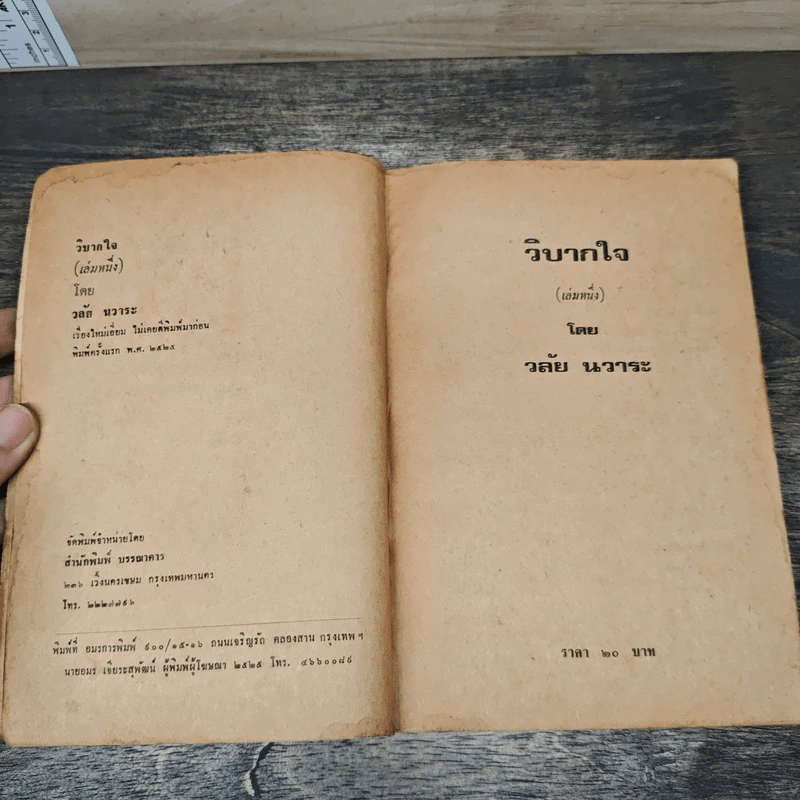 วิบากใจ
(เล่มหนึ่ง)
โดย
วลัย นวาระ
เรื่องใหม่เอี่ยม ไม่เคยตีพิมพ์มาก่อน
พิมพ์ครั้งแรก พ.ศ. ๒๕๒๕
จัดพิมพ์จำหน่ายโดย
สำนักพิมพ์ บรรณาคาร
๒๓๖ เวิ้งนครเขษม กรุงเทพมหานคร
โทร. ๒๒๒๗๗๙๖
พิมพ์ที่ อมรการพิมพ์ ๙๐๐/๑๕-๑๖ ถนนเจริญรัถ คลองสาน กรุงเทพ ฯ
นายอมร เจียระสุพัฒน์ ผู้พิมพ์ผู้โฆษณา ๒๕๒๕ โทร. ๔๖๖๐๐๘๙
วิบากใจ
(เล่มหนึ่ง)
โดย
วลัย นวาระ
ราคา ๒๐ บาท
inches
1
2
3